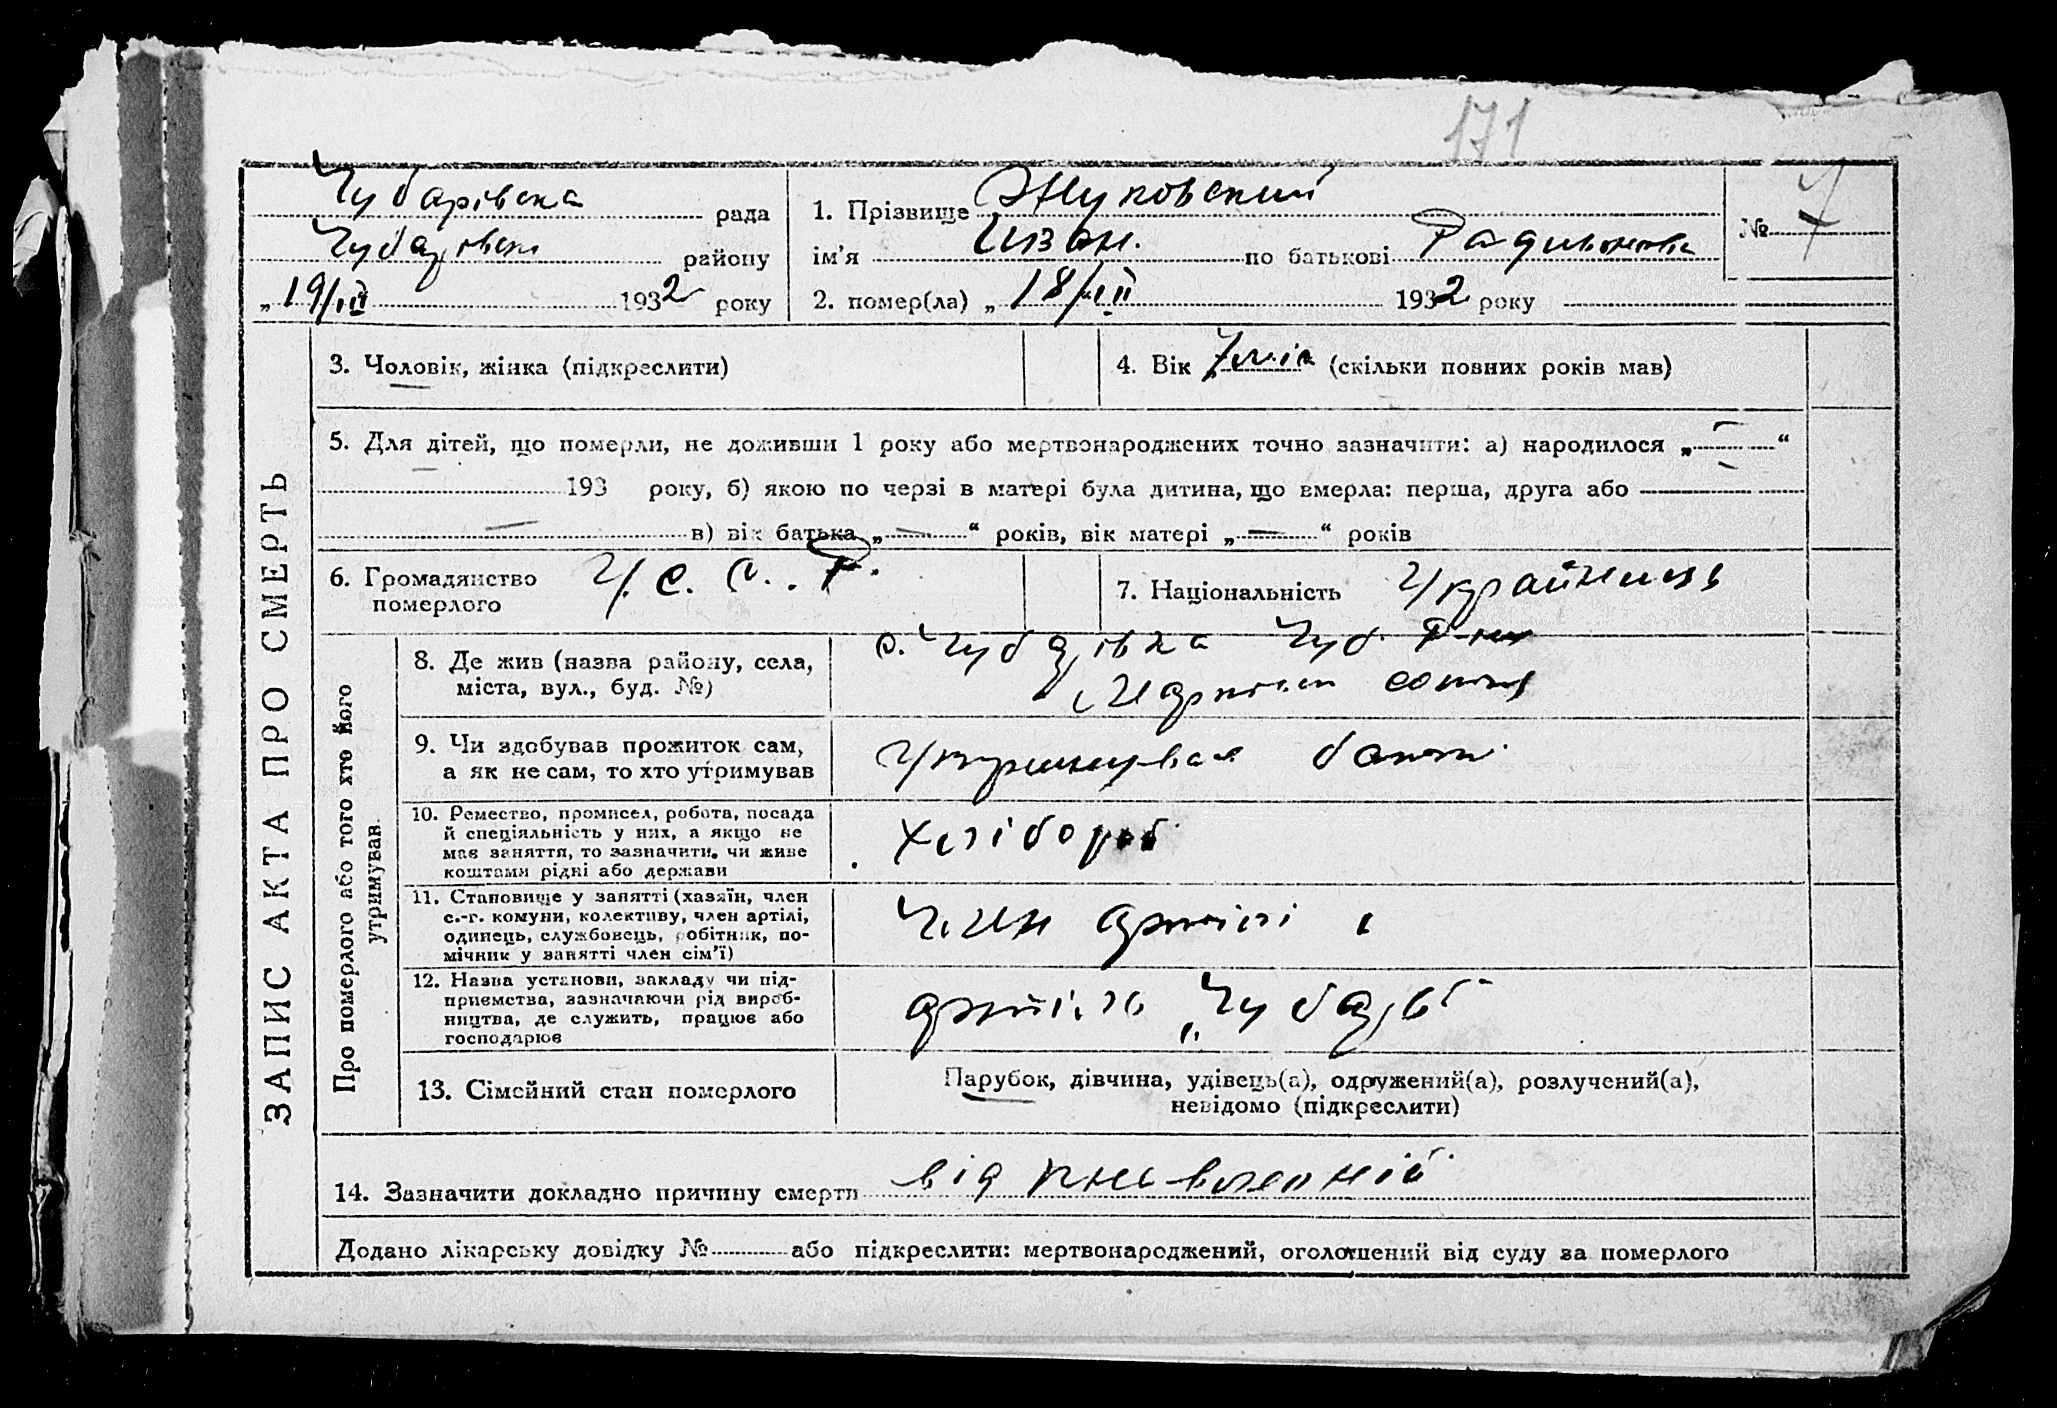 171
Чубарівська рада
Чубарівськ району
„19/III 1932 року
1. Прізвище Жуковский
ім'я Иван. по батькові Радивонова
2. помер(ла) „18/III 1932 року
№ 7
ЗАПИС АКТА ПРО СМЕРТЬ
3. Чоловік, жінка (підкреслити)
4. Вік 7 (скільки повних років мав)
5. Для дітей, що померли, не доживши 1 року або мертвонароджених точно зазначити: а) народилося „ — “
193 року, б) якою по черзі в матері була дитина, що вмерла: перша, друга або
— в) вік батька „ — “ років, вік матері „ — “ років
6. Громадянство
померлого У. С. С. Р.
7. Національність Українець
Про померлого або того хто його
утримував.
8. Де жив (назва району, села,
міста, вул., буд. №)
с. Чубарівка Чуб. Р-ну
9. Чи здобував прожиток сам,
а як не сам, то хто утримував
Утримував батько
10. Ремество, промисел, робота, посада
й спеціяльність у них, а якщо не
має заняття, то зазначити, чи живе
коштами рідні або держави
Хлібороб
11. Становище у занятті (хазяїн, член
с.-г. комуни, колективу, член артілі,
одинець, службовець, робітник, по-
мічник у занятті член сім'ї)
Член артілі
12. Назва установи, закладу чи під-
приємства, зазначаючи рід вироб-
ництва, де служить, працює або
господарює
артіль „Чубарь“
13. Сімейний стан померлого
Парубок, дівчина, удівець(а), одружений(а), розлучений(а),
невідомо (підкреслити)
14. Зазначити докладно причину смерти від
Додано лікарську довідку № або підкреслити: мертвонароджений, оголошений від суду за померлого